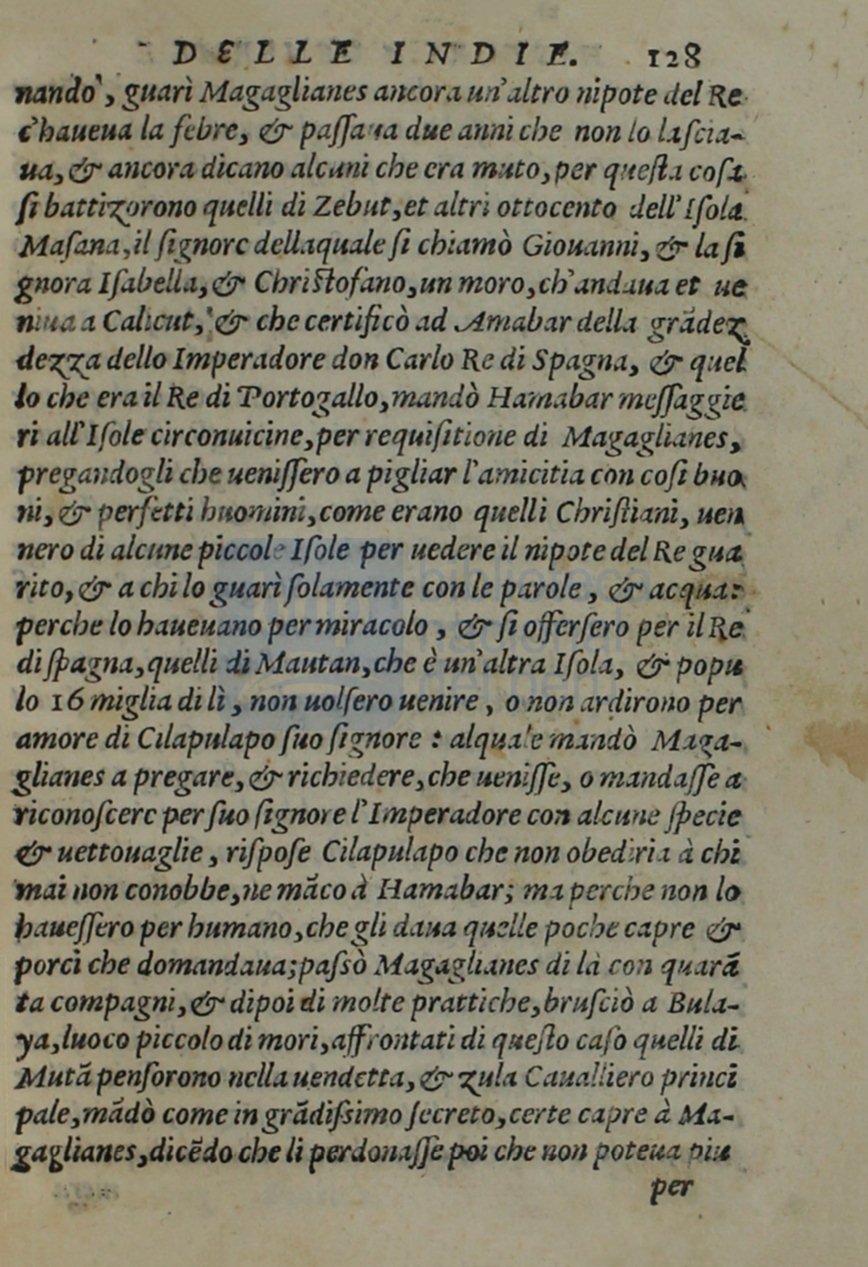 DELLE INDIE. 128
nandò, guarì Magaglianes ancora un'altro nipote del Re
c'haueua la febre, & paſſaua due anni che non lo laſcia-
ua, & ancora dicano alcuni che era muto, per queſta coſa
ſi battizorono quelli di Zebut, et altri ottocento dell'Iſola
Maſana, il ſignore dellaquale ſi chiamò Giouanni, & la ſi
gnora Iſabella, & Chriſtofano, un moro, ch'andaua et ue
niua a Calicut, & che certificò ad Amabar della grãdez
dezza dello Imperadore don Carlo Re di Spagna, & quel
lo che era il Re di Portogallo, mandò Hamabar meſſaggie
ri all'Iſole circonuicine, per requiſitione di Magaglianes,
pregandogli che ueniſſero a pigliar l'amicitia con coſi buo
ni, & perfetti huomini, come erano quelli Chriſtiani, uen
nero di alcune piccole Iſole per uedere il nipote del Re gua
rito, & a chi lo guarì ſolamente con le parole, & acqua:
perche lo haueuano per miracolo, & ſi offerſero per il Re
di ſpagna, quelli di Mautan, che è un'altra Iſola, & popu
lo 16 miglia di lì, non uolſero uenire, o non ardirono per
amore di Cilapulapo ſuo ſignore: alquale mandò Maga-
glianes a pregare, & richiedere, che ueniſſe, o mandaſſe a
riconoſcere per ſuo ſignore l'Imperadore con alcune ſpecie
& uettouaglie, riſpoſe Cilapulapo che non obediria à chi
mai non conobbe, ne mãco à Hamabar; ma perche non lo
haueſſero per humano, che gli daua quelle poche capre &
porci che domandaua; paſsò Magaglianes di là con quarã
ta compagni, & dipoi di molte prattiche, bruſciò a Bula-
ya, luoco piccolo di mori, affrontati di queſto caſo quelli di
Mutã penſorono nella uendetta, & zula Caualliero princi
pale, mãdò come in grãdiſsimo ſecreto, certe capre à Ma-
gaglianes, dicẽdo che li perdonaſſe poi che non poteua piu
per